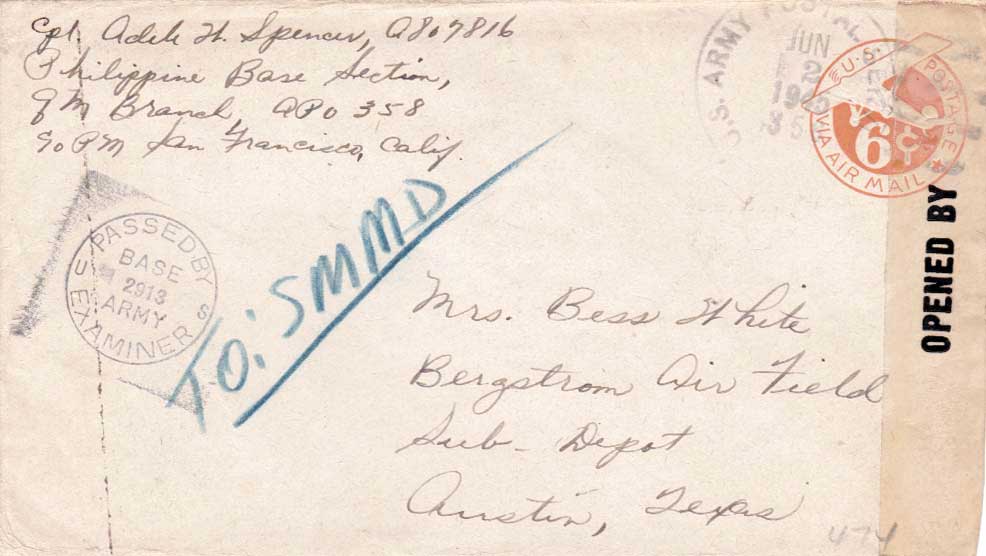 Cpl. Adele H. Spencer, A807816
Philippine Base Section,
QM Branch, APO 358
c/o PM San Francisco, Calif.
U.S. ARMY POSTAL
JUN
2
1945
U.S. POSTAGE
6¢
VIA AIR MAIL
PASSED BY
BASE
2913
ARMY
EXAMINER
U S
TO: SMMD
OPENED BY
Mrs. Bess White
Bergstrom Air Field
Sub-Depot
Austin, Texas
474